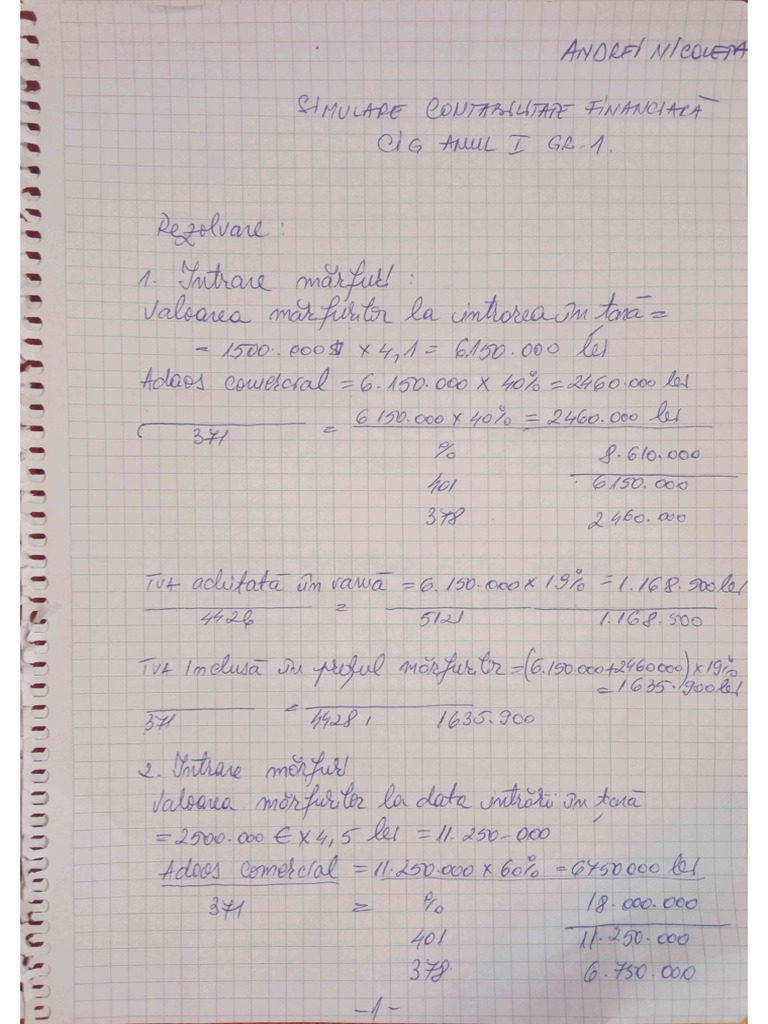 ANDREI NICOLETA
SIMULARE CONTABILITATE FINANCIARĂ
CIG ANUL I GR-1.
Rezolvare:
1. Intrare mărfuri:
Valoarea mărfurilor la intrarea în țară =
= 1500.000$ x 4,1 = 6150.000 lei
Adaos comercial = 6.150.000 x 40% = 2460.000 lei
371 = 6150.000 x 40% = 2460.000 lei
% 8.610.000
401 6150.000
378 2460.000
TVA achitată în vamă = 6.150.000 x 19% = 1.168.500 lei
4426 = 5121 1.168.500
TVA inclusă în prețul mărfurilor = (6.150.000+2460000) x 19%
= 1635.900 lei
371 = 4428 1635.900
2. Intrare mărfuri
Valoarea mărfurilor la data intrării în țară
= 2500.000 € x 4,5 lei = 11.250-000
Adaos comercial = 11.250.000 x 60% = 6750000 lei
371 = % 18.000.000
401 11.250.000
378 6.750.000
-1-